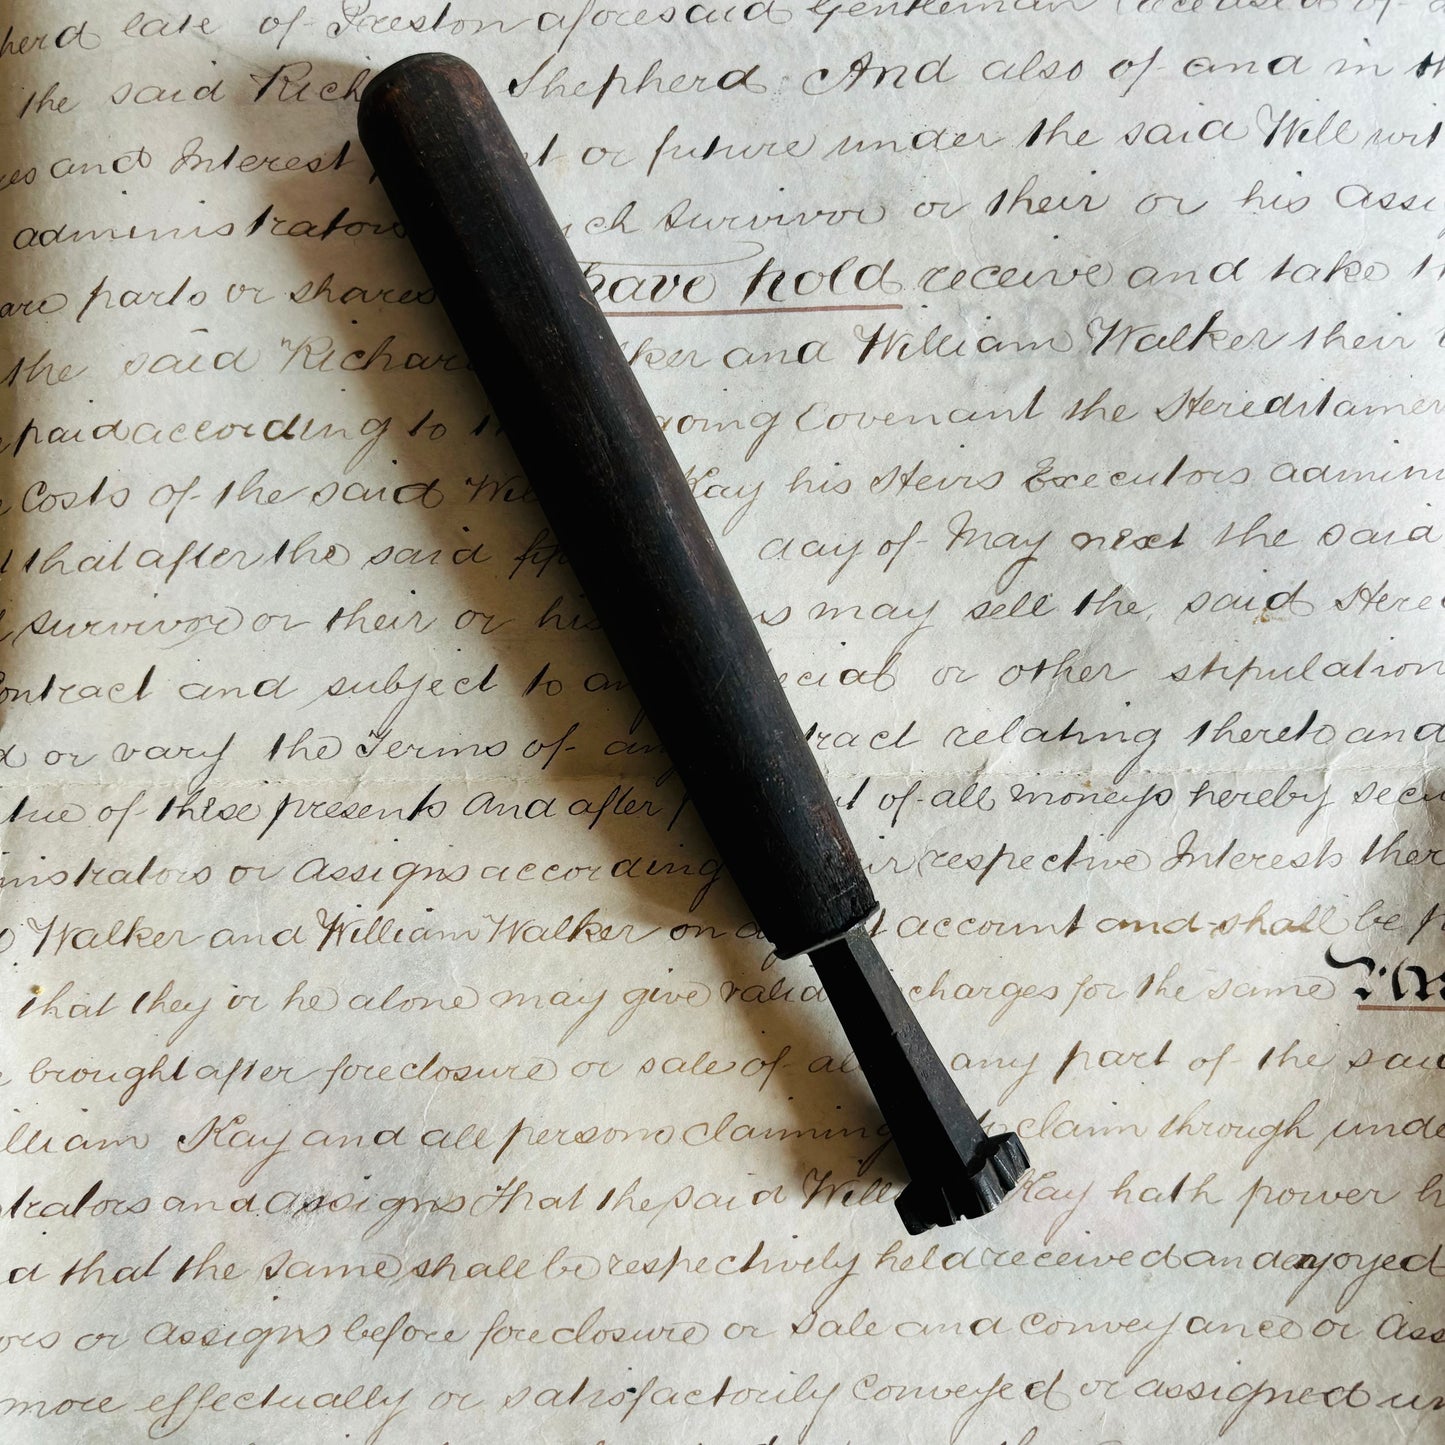 late of Preston aforesaid Gentleman deceased of
the said Rich Shepherd And also of and in th
es and Interest p t or future under the said Will wit
administrators ch Survivor or their or his Assi
are parts or shares have hold receive and take th
the said Richard lker and William Walker their
paid according to th going Covenant the Hereditamen
Costs of the said Wil Kay his Heirs Executors admini
that after the said fif day of May next the said
Survivor or their or his s may sell the said Here
Contract and subject to an ecial or other stipulation
d or vary the Terms of an tract relating thereto and
tue of these presents And after p t of all moneys hereby secu
inistrators or Assigns according ir respective Interests ther
Walker and William Walker on a t account and shall be p
that they or he alone may give valid charges for the same
brought after foreclosure or sale of all any part of the said
illiam Kay and all persons claiming to claim through unde
trators and Assigns that the said Will Kay hath power
d that the same shall be respectively held received and enjoyed
ors or Assigns before foreclosure or Sale and Conveyance or Ass
more effectually or satisfactorily Conveyed or assigned un